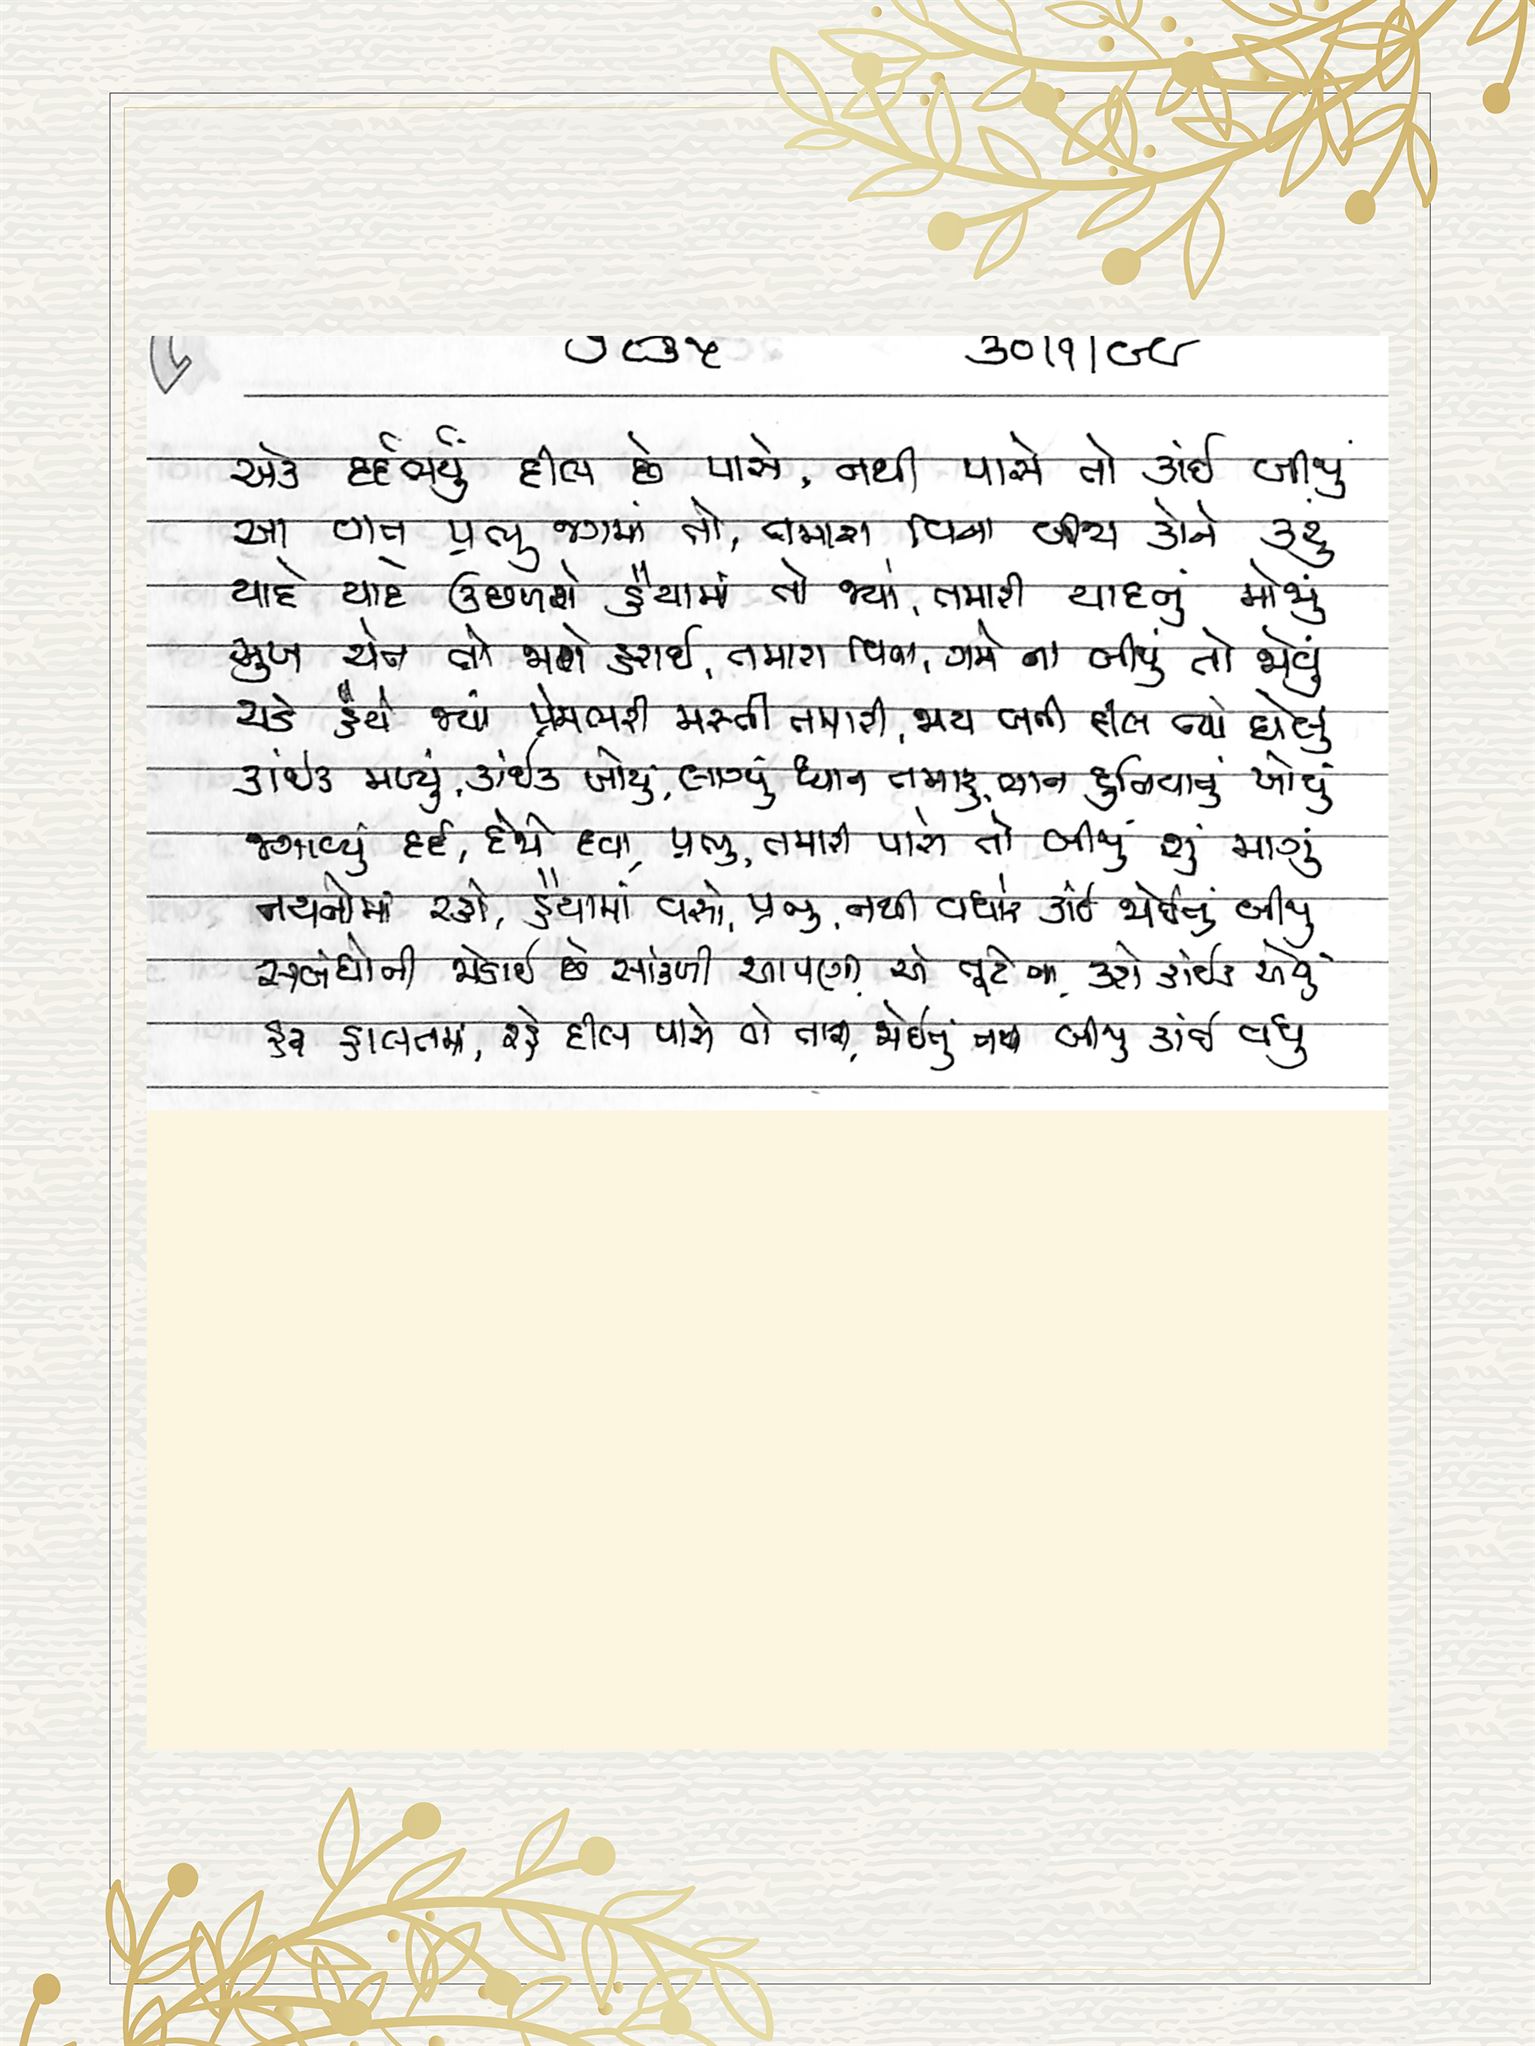 ૭૮૩૫ ૩૦/૧/૯૯
એક દર્દભર્યું દીલ છે પાસે, નથી પાસે તો કાંઈ બીજું
આ વાત પ્રભુ જગમાં તો, તમારા વિના બીજા કોને કહું
યાદે યાદે ઉછળશે હૈયામાં તો જ્યાં, તમારી યાદનું મોજું
મુજ ચેન તો જાશે હરાઈ, તમારા વિના, ગમે ના બીજું તો જોવું
ચડે હૈયે જ્યાં પ્રેમભરી મસ્તી તમારી, જાય બની દીલ ત્યાં ઘેલું
કાંઈક મળ્યું, કાંઈક જોયું, લાગ્યું ધ્યાન તમારું, ભાન દુનિયાનું ખોયું
જગાવ્યું દર્દ, દેજે દવા, પ્રભુ, તમારી પાસે તો બીજું શું માગું
નયનોમાં રહો, હૈયામાં વસો, પ્રભુ, નથી વધારે કાંઈ જોઈતું બીજું
સબંધોની જોડાઈ છે સાંકળી આપણી, એ તૂટે ના, કરો કાંઈક એવું
હર હાલતમાં, રહે દીલ પાસે તો તારા, જોઈતું નથી બીજું કાંઈ વધુ